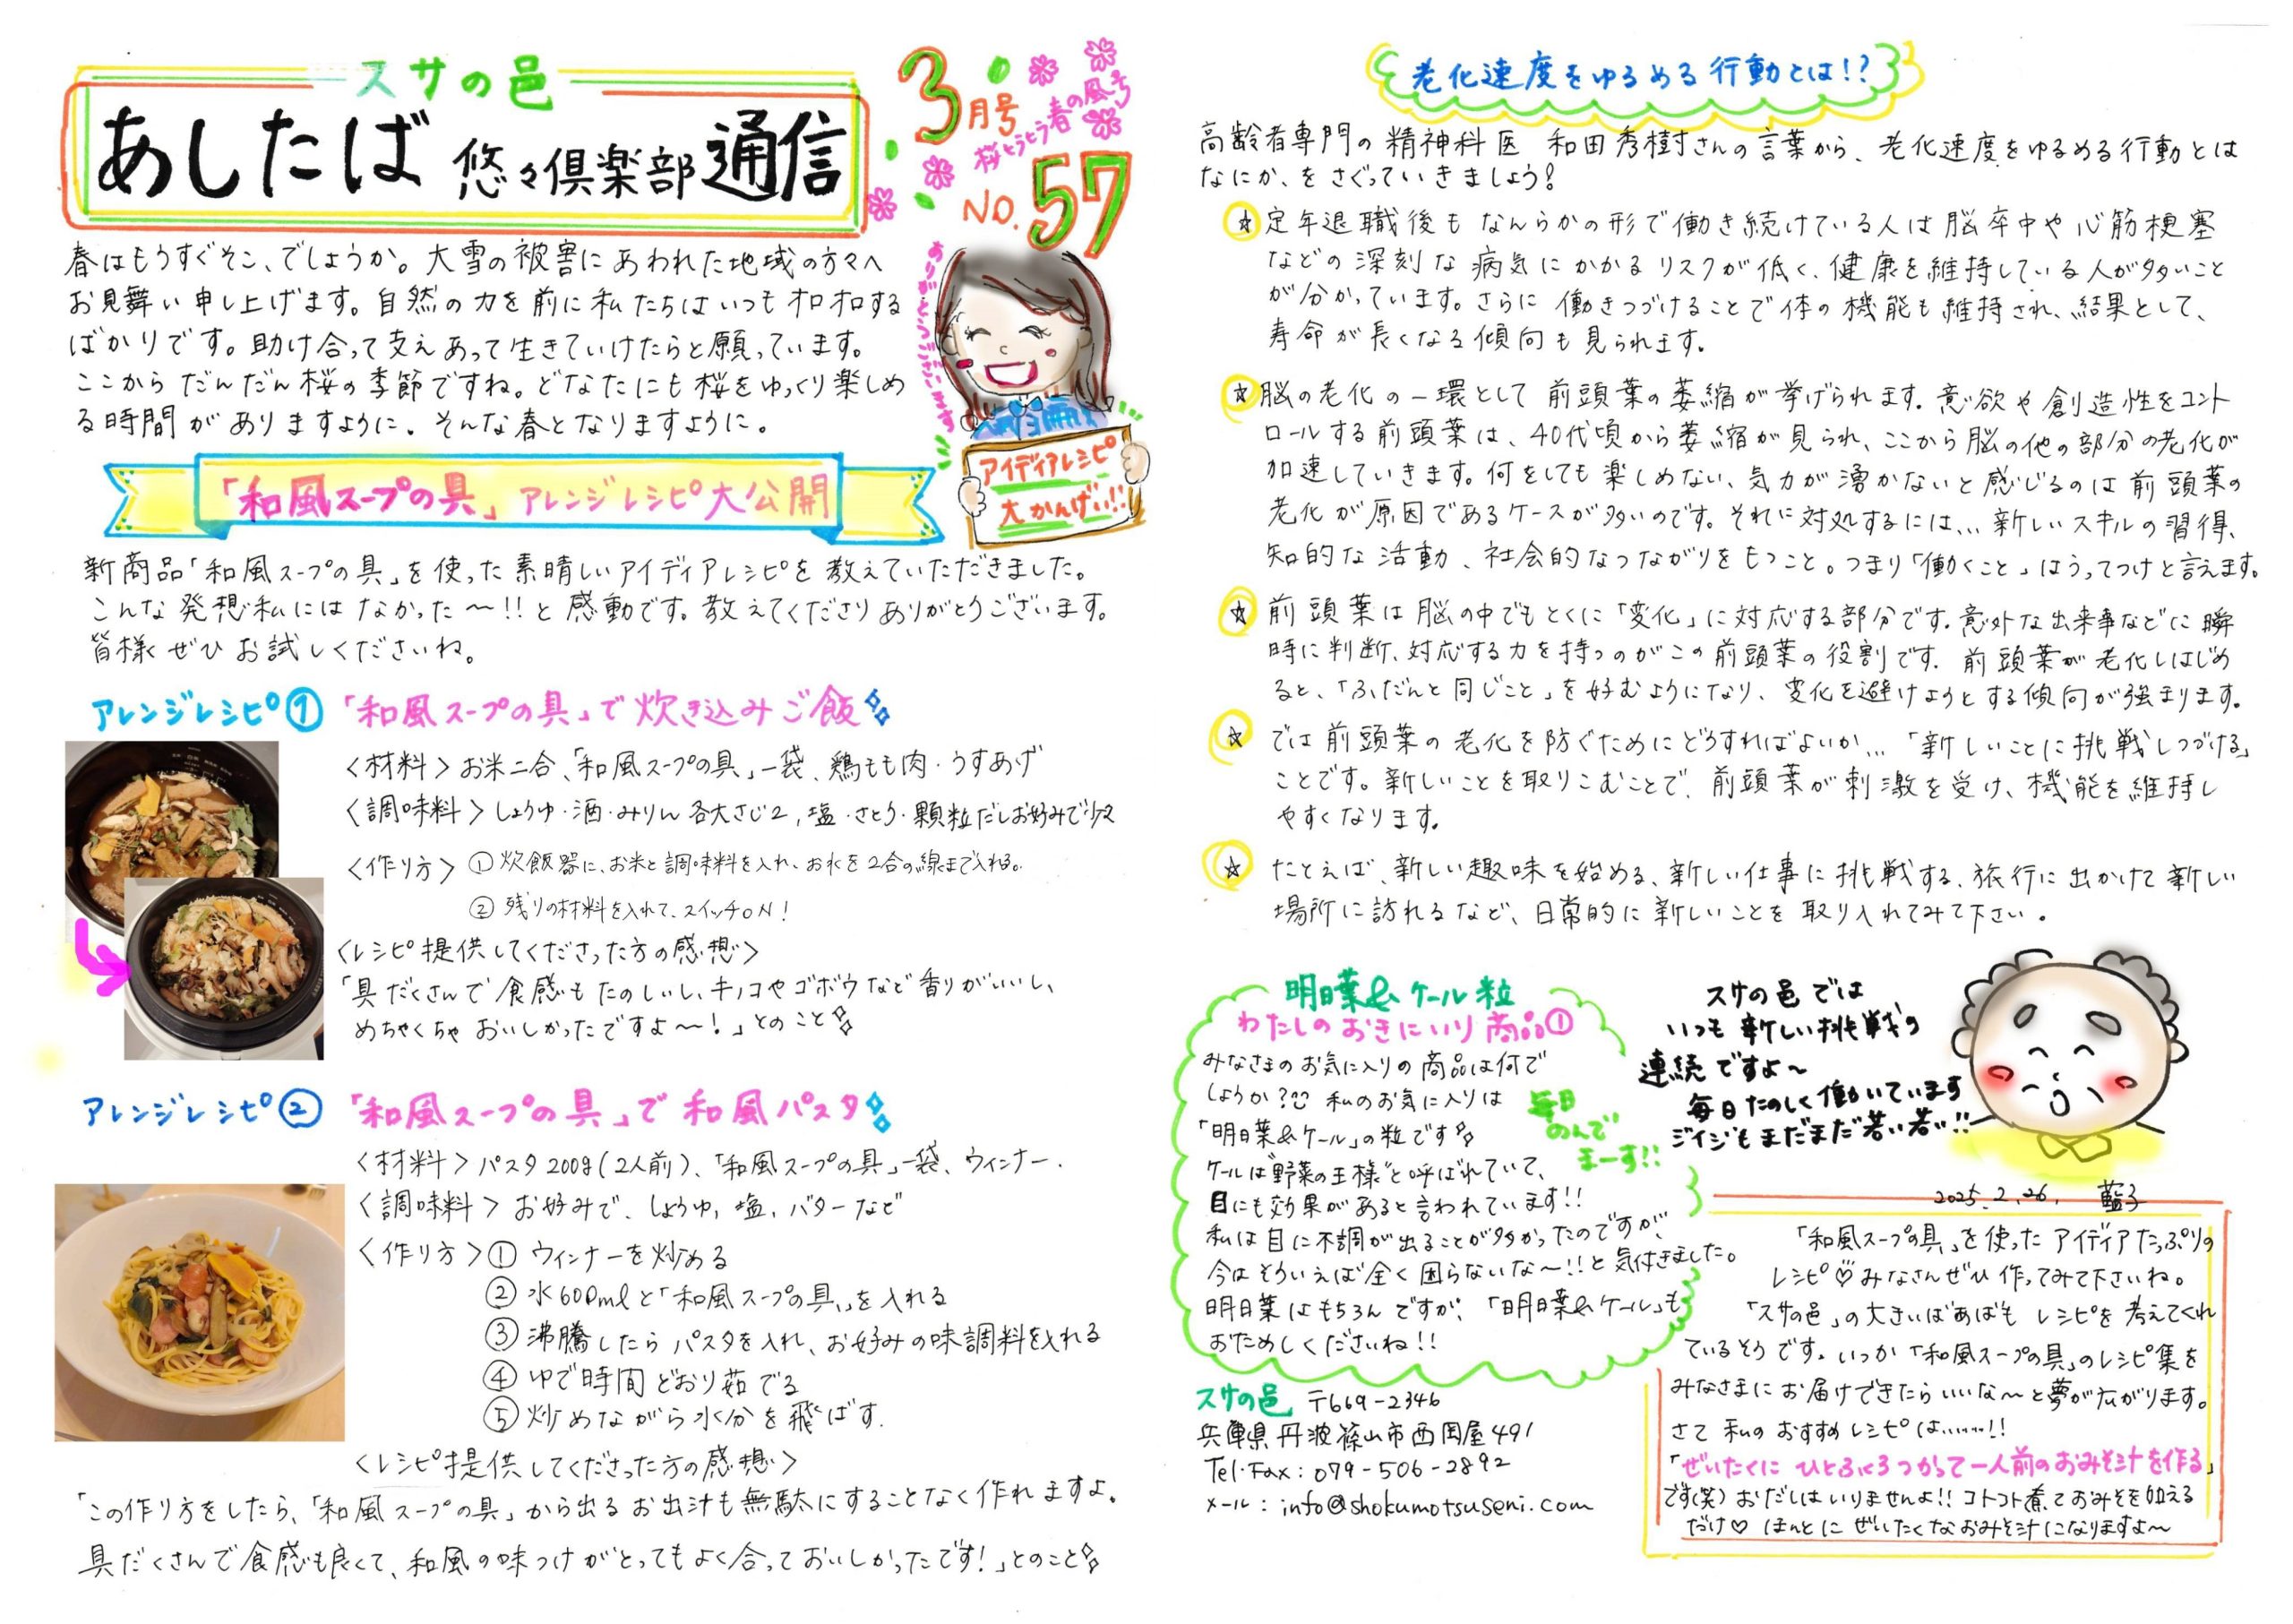 スサの邑
あしたば 悠々倶楽部 通信
3月号
桜とうとう春の風号
NO.57
春はもうすぐそこ、でしょうか。大雪の被害にあわれた地域の方々へ
お見舞い申し上げます。自然の力を前に私たちはいつもオロオロする
ばかりです。助け合って支えあって生きていけたらと願っています。
ここからだんだん桜の季節ですね。どなたにも桜をゆっくり楽しめ
る時間がありますように。そんな春となりますように。
ありがとうございます
アイディアレシピ
大かんげい!!
「和風スープの具」アレンジレシピ大公開
新商品「和風スープの具」を使った素晴しいアイディアレシピを教えていただきました。
こんな発想私にはなかった〜!!と感動です。教えてくださりありがとうございます。
皆様ぜひお試しくださいね。
アレンジレシピ① 「和風スープの具」で炊き込みご飯
<材料> お米二合、「和風スープの具」一袋、鶏もも肉・うすあげ
<調味料> しょうゆ・酒・みりん各大さじ2、塩・さとう・顆粒だしお好みで少々
<作り方> ① 炊飯器に、お米と調味料を入れ、お水を2合の線まで入れる。
② 残りの材料を入れて、スイッチON!
<レシピ提供してくださった方の感想>
「具だくさんで食感もたのしいし、キノコやゴボウなど香りがいいし、
めちゃくちゃおいしかったですよ〜!」とのこと
アレンジレシピ② 「和風スープの具」で和風パスタ
<材料> パスタ200g(2人前)、「和風スープの具」一袋、ウィンナー.
<調味料> お好みで、しょうゆ, 塩, バターなど
<作り方> ① ウィンナーを炒める
② 水600mlと「和風スープの具」を入れる
③ 沸騰したらパスタを入れ、お好みの味調料を入れる
④ ゆで時間どおり茹でる
⑤ 炒めながら水分を飛ばす.
<レシピ提供してくださった方の感想>
「この作り方をしたら、「和風スープの具」から出るお出汁も無駄にすることなく作れますよ。
具だくさんで食感も良くて、和風の味つけがとってもよく合っておいしかったです!」とのこと
老化速度をゆるめる行動とは!?
高齢者専門の精神科医 和田秀樹さんの言葉から、老化速度をゆるめる行動とは
なにか、をさぐっていきましょう!
☆ 定年退職後もなんらかの形で働き続けている人は脳卒中や心筋梗塞
などの深刻な病気にかかるリスクが低く、健康を維持している人が多いこと
が分かっています。さらに働きつづけることで体の機能も維持され、結果として、
寿命が長くなる傾向も見られます。
☆ 脳の老化の一環として前頭葉の萎縮が挙げられます。意欲や創造性をコント
ロールする前頭葉は、40代頃から萎縮が見られ、ここから脳の他の部分の老化が
加速していきます。何をしても楽しめない、気力が湧かないと感じるのは前頭葉の
老化が原因であるケースが多いのです。それに対処するには…新しいスキルの習得、
知的な活動、社会的なつながりをもつこと。つまり「働くこと」はうってつけと言えます。
☆ 前頭葉は脳の中でもとくに「変化」に対応する部分です。意外な出来事などに瞬
時に判断、対応する力を持つのがこの前頭葉の役割です。前頭葉が老化しはじめ
ると、「ふだんと同じこと」を好むようになり、変化を避けようとする傾向が強まります。
☆ では前頭葉の老化を防ぐためにどうすればよいか…「新しいことに挑戦しつづける」
ことです。新しいことを取りこむことで、前頭葉が刺激を受け、機能を維持し
やすくなります。
☆ たとえば、新しい趣味を始める、新しい仕事に挑戦する、旅行に出かけて新しい
場所に訪れるなど、日常的に新しいことを取り入れてみて下さい。
スサの邑では
いつも新しい挑戦の
連続ですよ〜
毎日たのしく働いています
ジイジもまだまだ若い若い!!
明日葉&ケール粒
わたしのおきにいり商品①
みなさまのお気に入りの商品は何で
しょうか? 私のお気に入りは
「明日葉&ケール」の粒です
ケールは"野菜の王様"と呼ばれていて、
目にも効果があると言われています!!
私は目に不調が出ることが多かったのですが、
今はそういえば全く困らないな〜!!と気付きました。
明日葉はもちろんですが、「明日葉&ケール」も
おためしくださいね!!
毎日
のんで
まーす!!
スサの邑 〒669-2346
兵庫県丹波篠山市西岡屋491
Tel・Fax: 079-506-2892
メール: info@shokumotsuseni.com
2025.2.26. 藍子
「和風スープの具」を使ったアイディアたっぷりの
レシピ♡みなさんぜひ作ってみて下さいね。
「スサの邑」の大きいばあばもレシピを考えてくれ
ているそうです。いつか「和風スープの具」のレシピ集を
みなさまにお届けできたらいいな〜と夢が広がります。
さて私のおすすめレシピは……!!
「ぜいたくにひとふくろつかって一人前のおみそ汁を作る」
です(笑)おだしはいりませんよ!!コトコト煮ておみそを加える
だけ♡ほんとにぜいたくなおみそ汁になりますよ〜